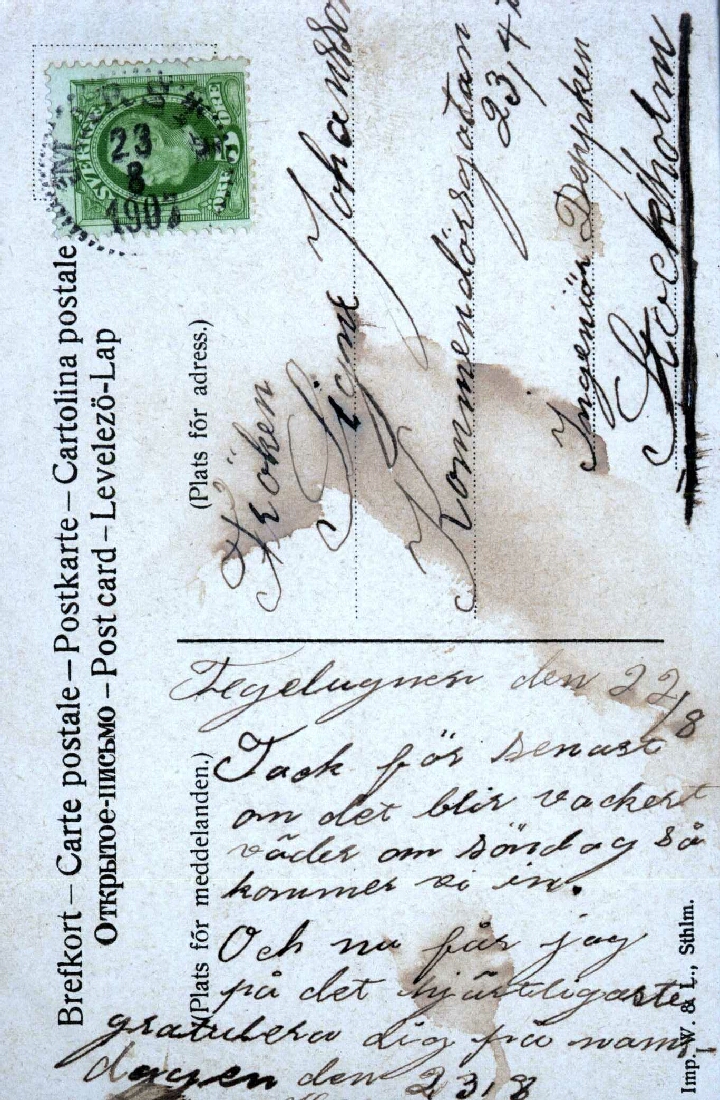 Brefkort – Carte postale – Postkarte – Cartolina postale
Открытое-письмо – Post card – Levelezö-Lap
SVERIGE
23
8
1907
(Plats för adress.)
Fröken
Signe Johansson
Kommendörsgatan
23, 4
Ingeniör Deppken
Stockholm
(Plats för meddelanden.)
Tegelugnen den 22/8
Tack för senast
om det blir vackert
väder om söndag så
kommer vi in.
Och nu får jag
på det hjärtligaste
gratulera dig på namns
dagen den 23/8
Imp. W. & L., Sthlm.